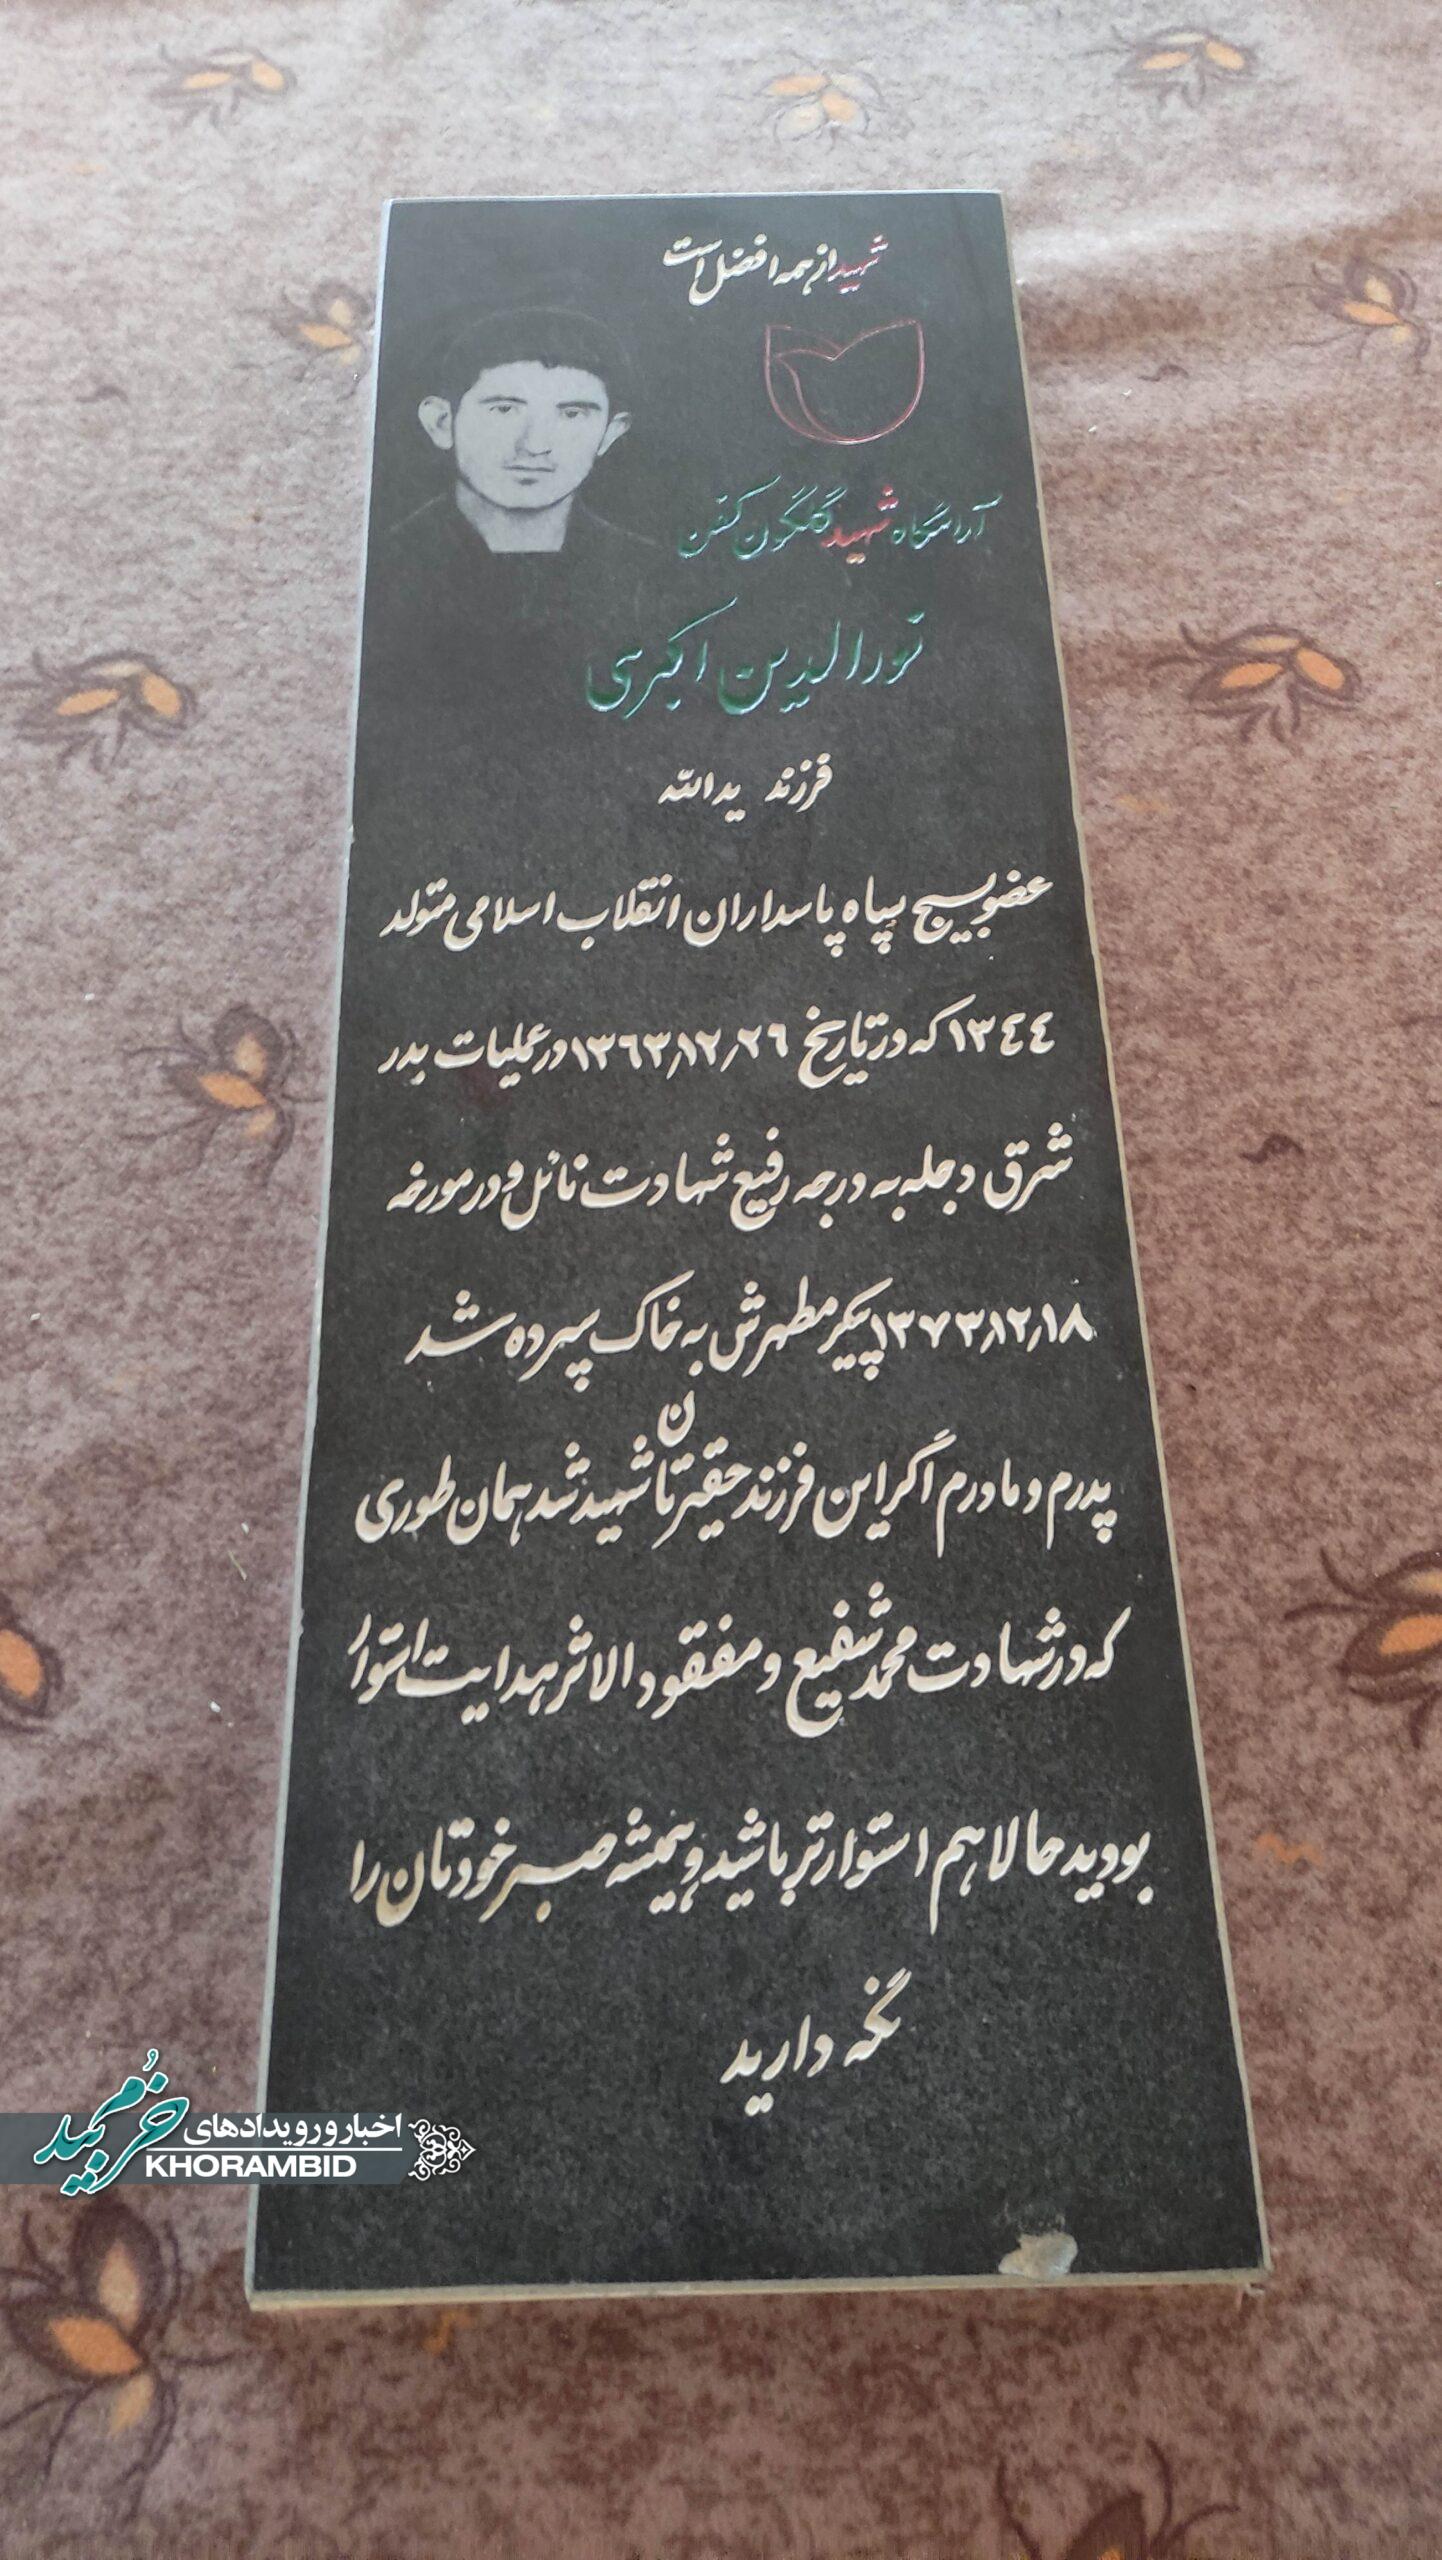 شهید از همه افضل است
آرامگاه شهید گلگون کفن
نورالدین اکبری
فرزند یدالله
عضو بسیج سپاه پاسداران انقلاب اسلامی متولد
۱۳٤٤ که در تاریخ ۱۳٦۳٫۱۲٫۲٦ در عملیات بدر
شرق دجله به درجه رفیع شهادت نائل و در مورخه
۱۳۷۳٫۱۲٫۱۸ پیکر مطهرش به خاک سپرده شد
پدرم و مادرم اگر این فرزند حقیرتان شهید شد همان طوری
که در شهادت محمد شفیع و مفقود الاثر هدایت استوار
بودید حالا هم استوارتر باشید و همیشه صبر خودتان را
نگه دارید
اخبار و رویدادهای
خرمبید
KHORAMBID